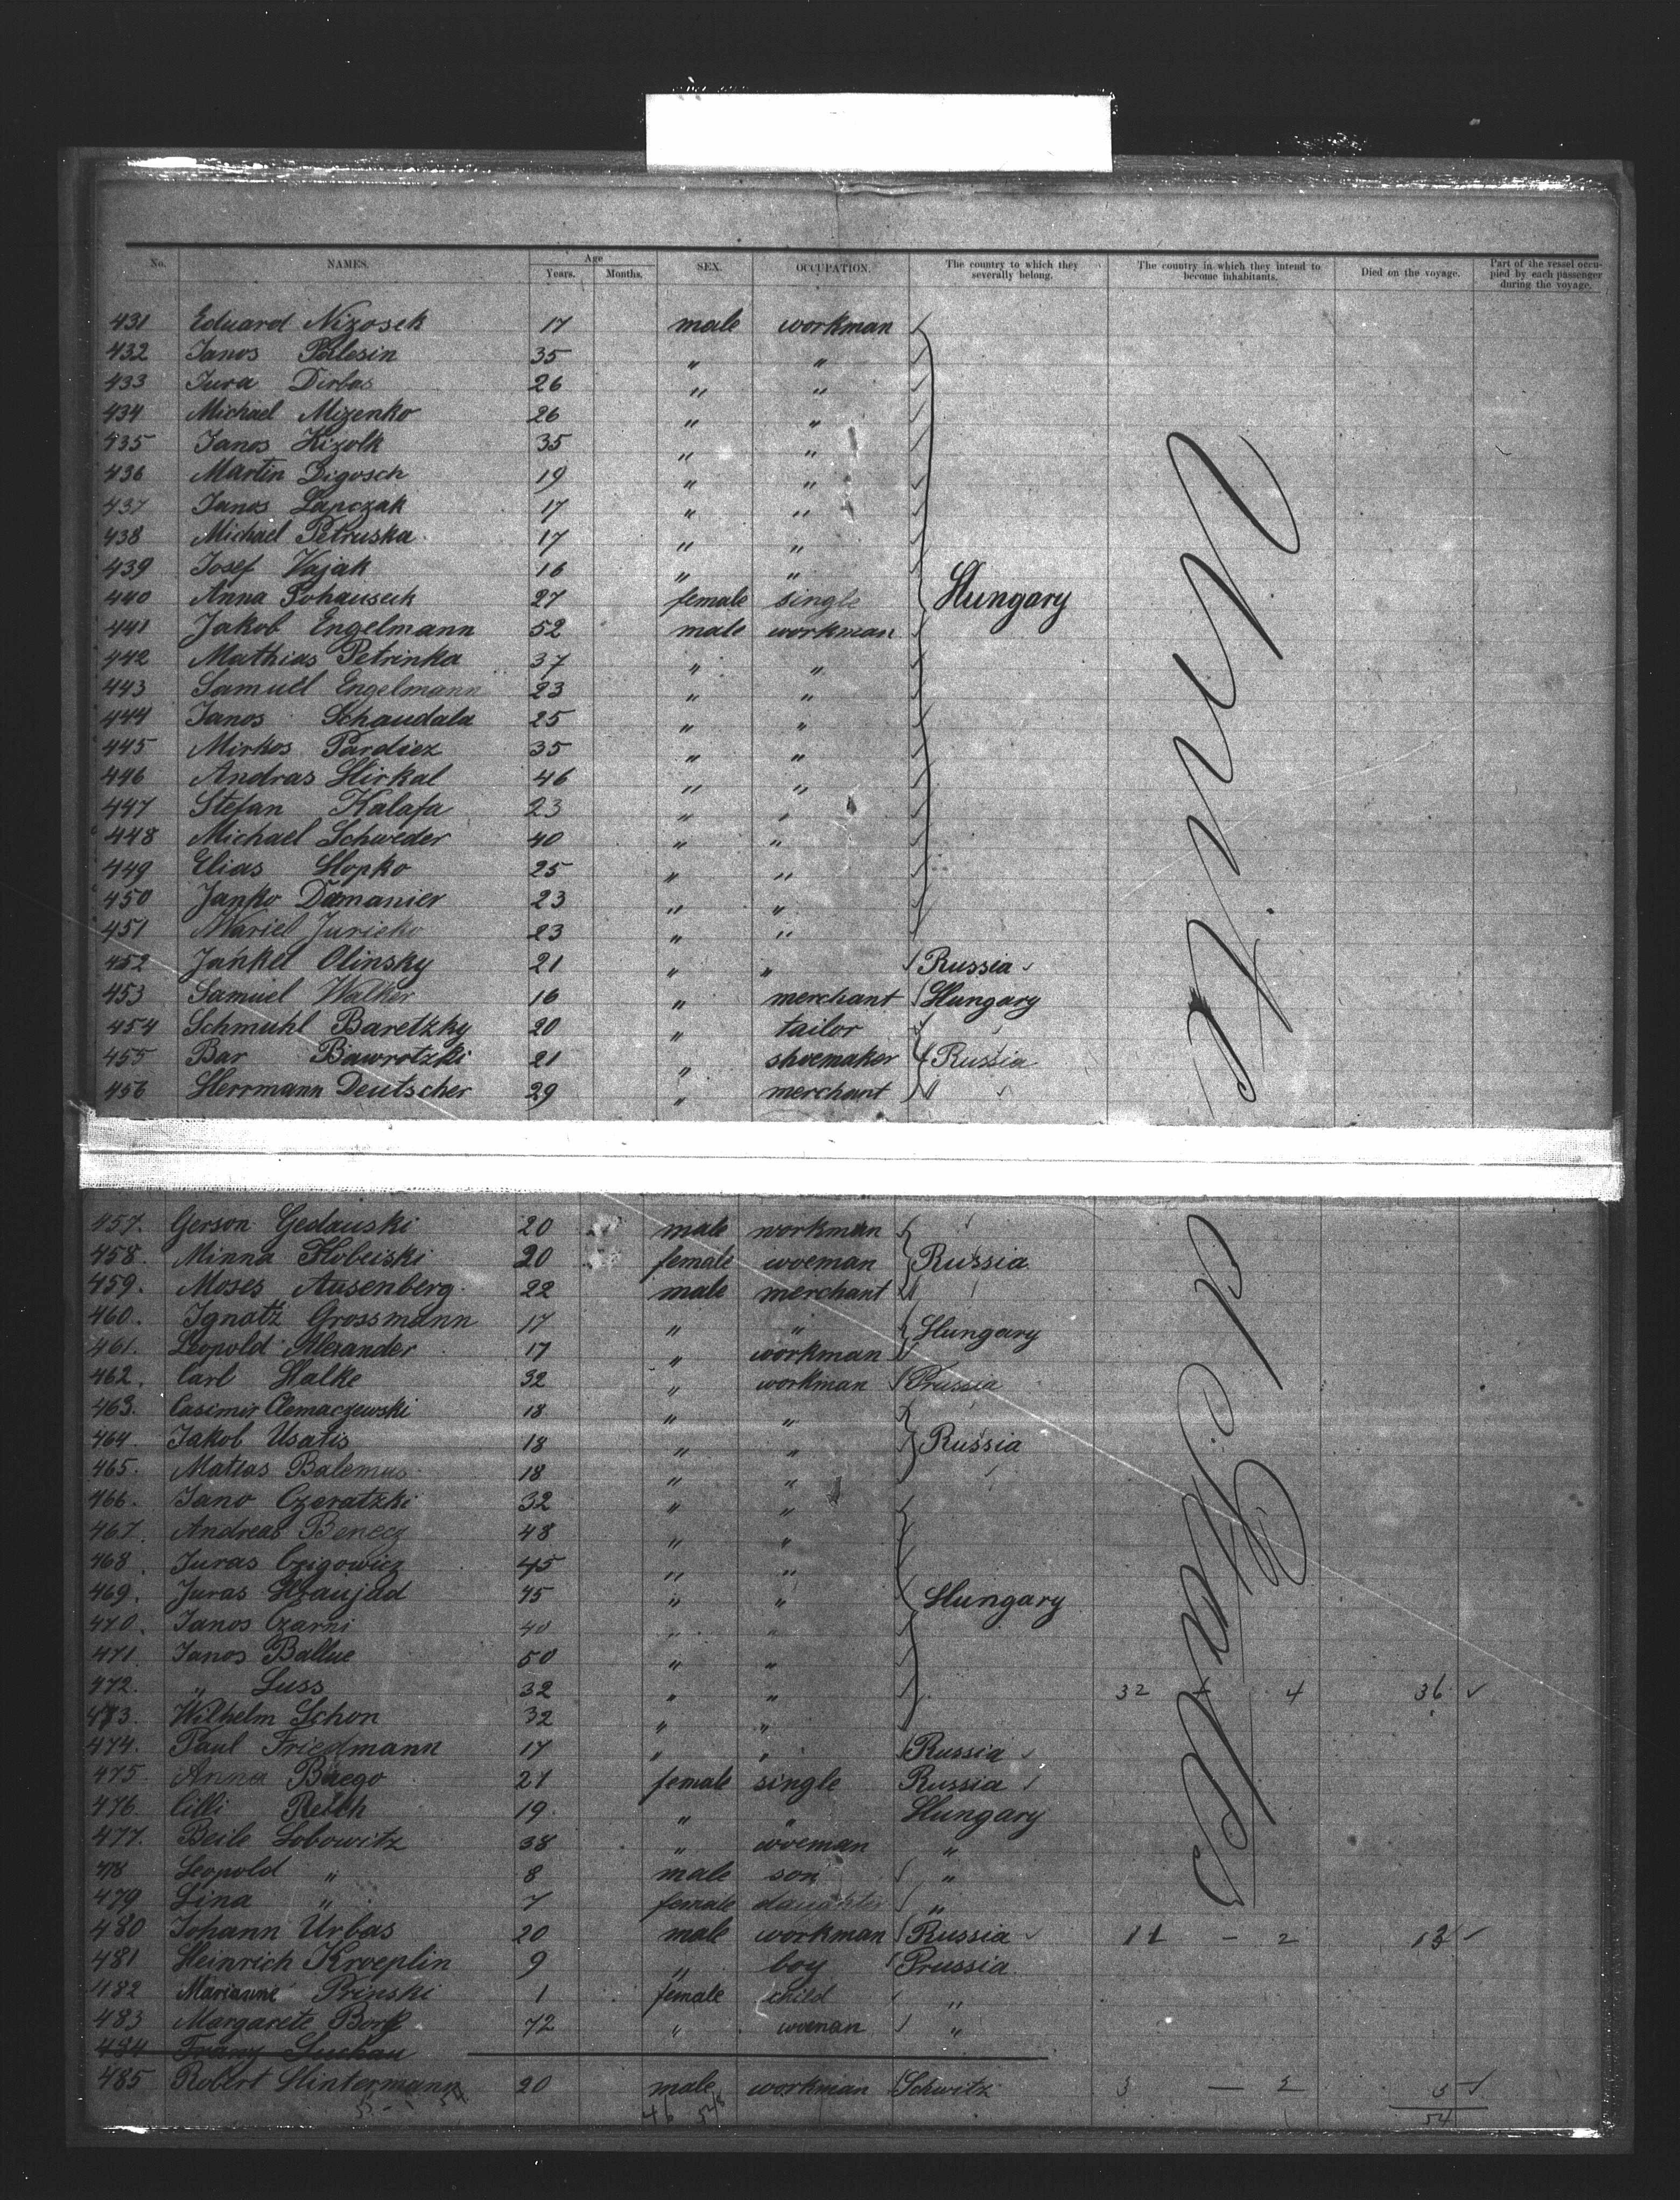 No. NAMES. Age Years. Months. SEX. OCCUPATION. The country to which they severally belong. The country in which they intend to become inhabitants. Died on the voyage. Part of the vessel occupied by each passenger during the voyage.
431 Eduard Nizosek 17 male workman
432 Janos Palesin 35 " "
433 Jura Dirbas 26 " "
434 Michael Mizenko 26 " "
435 Janos Kizolk 35 " "
436 Martin Digosch 19 " "
437 Janos Lapczak 17 " "
438 Michael Petruska 17 " "
439 Josef Vajak 16 " "
440 Anna 27 female single Hungary
441 Jakob Engelmann 52 male workman
442 Mathias Petrinka 37 " "
443 Samuel Engelmann 23 " "
444 Janos Schaudala 25 " "
445 Mirkos Pardiez 35 " "
446 Andras Hirkal 46 " "
447 Stefan Kalafa 23 " "
448 Michael Schweder 40 " "
449 Elias Hopko 25 " "
450 Janko Damanier 23 " "
451 Juricko 23 " "
452 Jankel Olinsky 21 " " Russia
453 Samuel Walker 16 " merchant Hungary
454 Schmuhl Baretzky 20 " tailor
455 Bar Bawrotzki 21 " shoemaker Russia
456 Herrmann Deutscher 29 " merchant
457. Gerson Gedauski 20 male workman
458. Minna Hobeiski 20 female woeman Russia
459. Moses Ausenberg 22 male merchant
460. Ignatz Grossmann 17 " " Hungary
461. Leopold Alexander 17 " workman
462. Carl Halke 32 " workman Prussia
463. Casimir Clemaczewski 18 " "
464. Jakob Usatis 18 " " Russia
465. Matias Balemas 18 " "
466. Jano Czeratzki 32 " "
467. Andreas Benecz 48 " "
468. Juras Czigowicz 45 " "
469. Juras 45 " " Hungary
470. Janos Czarni 40 " "
471. Janos Ballue 50 " "
472. " Suss 32 " " 32 + 4 36
473. Wilhelm Schon 32 " "
474. Paul Friedmann 17 " " Russia
475. Anna Buego 21 female single Russia
476. Cilli Reich 19 " " Hungary
477. Beile Lobowitz 38 " woeman "
478 Leopold " 8 male son "
479 Lina " 7 female daughter "
480 Johann Urbas 20 male workman Russia 11 - 2 13
481 Heinrich Kroeplin 9 " boy Prussia
482 Marianne Prinski 1 female child "
483 Margarete Bork 72 " woeman "
484 Franz Suchau
485 Robert Hintermann 20 male workman Schwitz 3 - 2 5
46 54